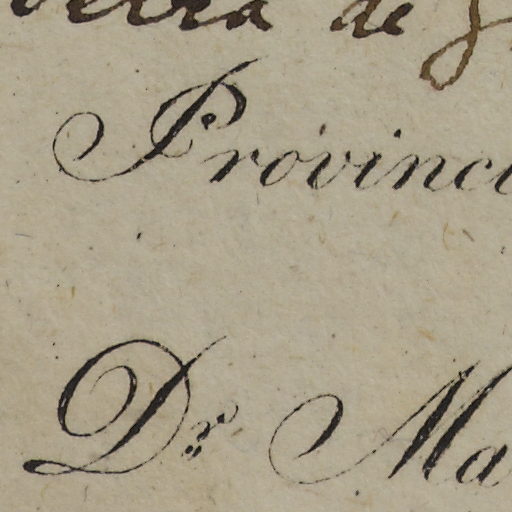 de
Provinci
Dr. Ma